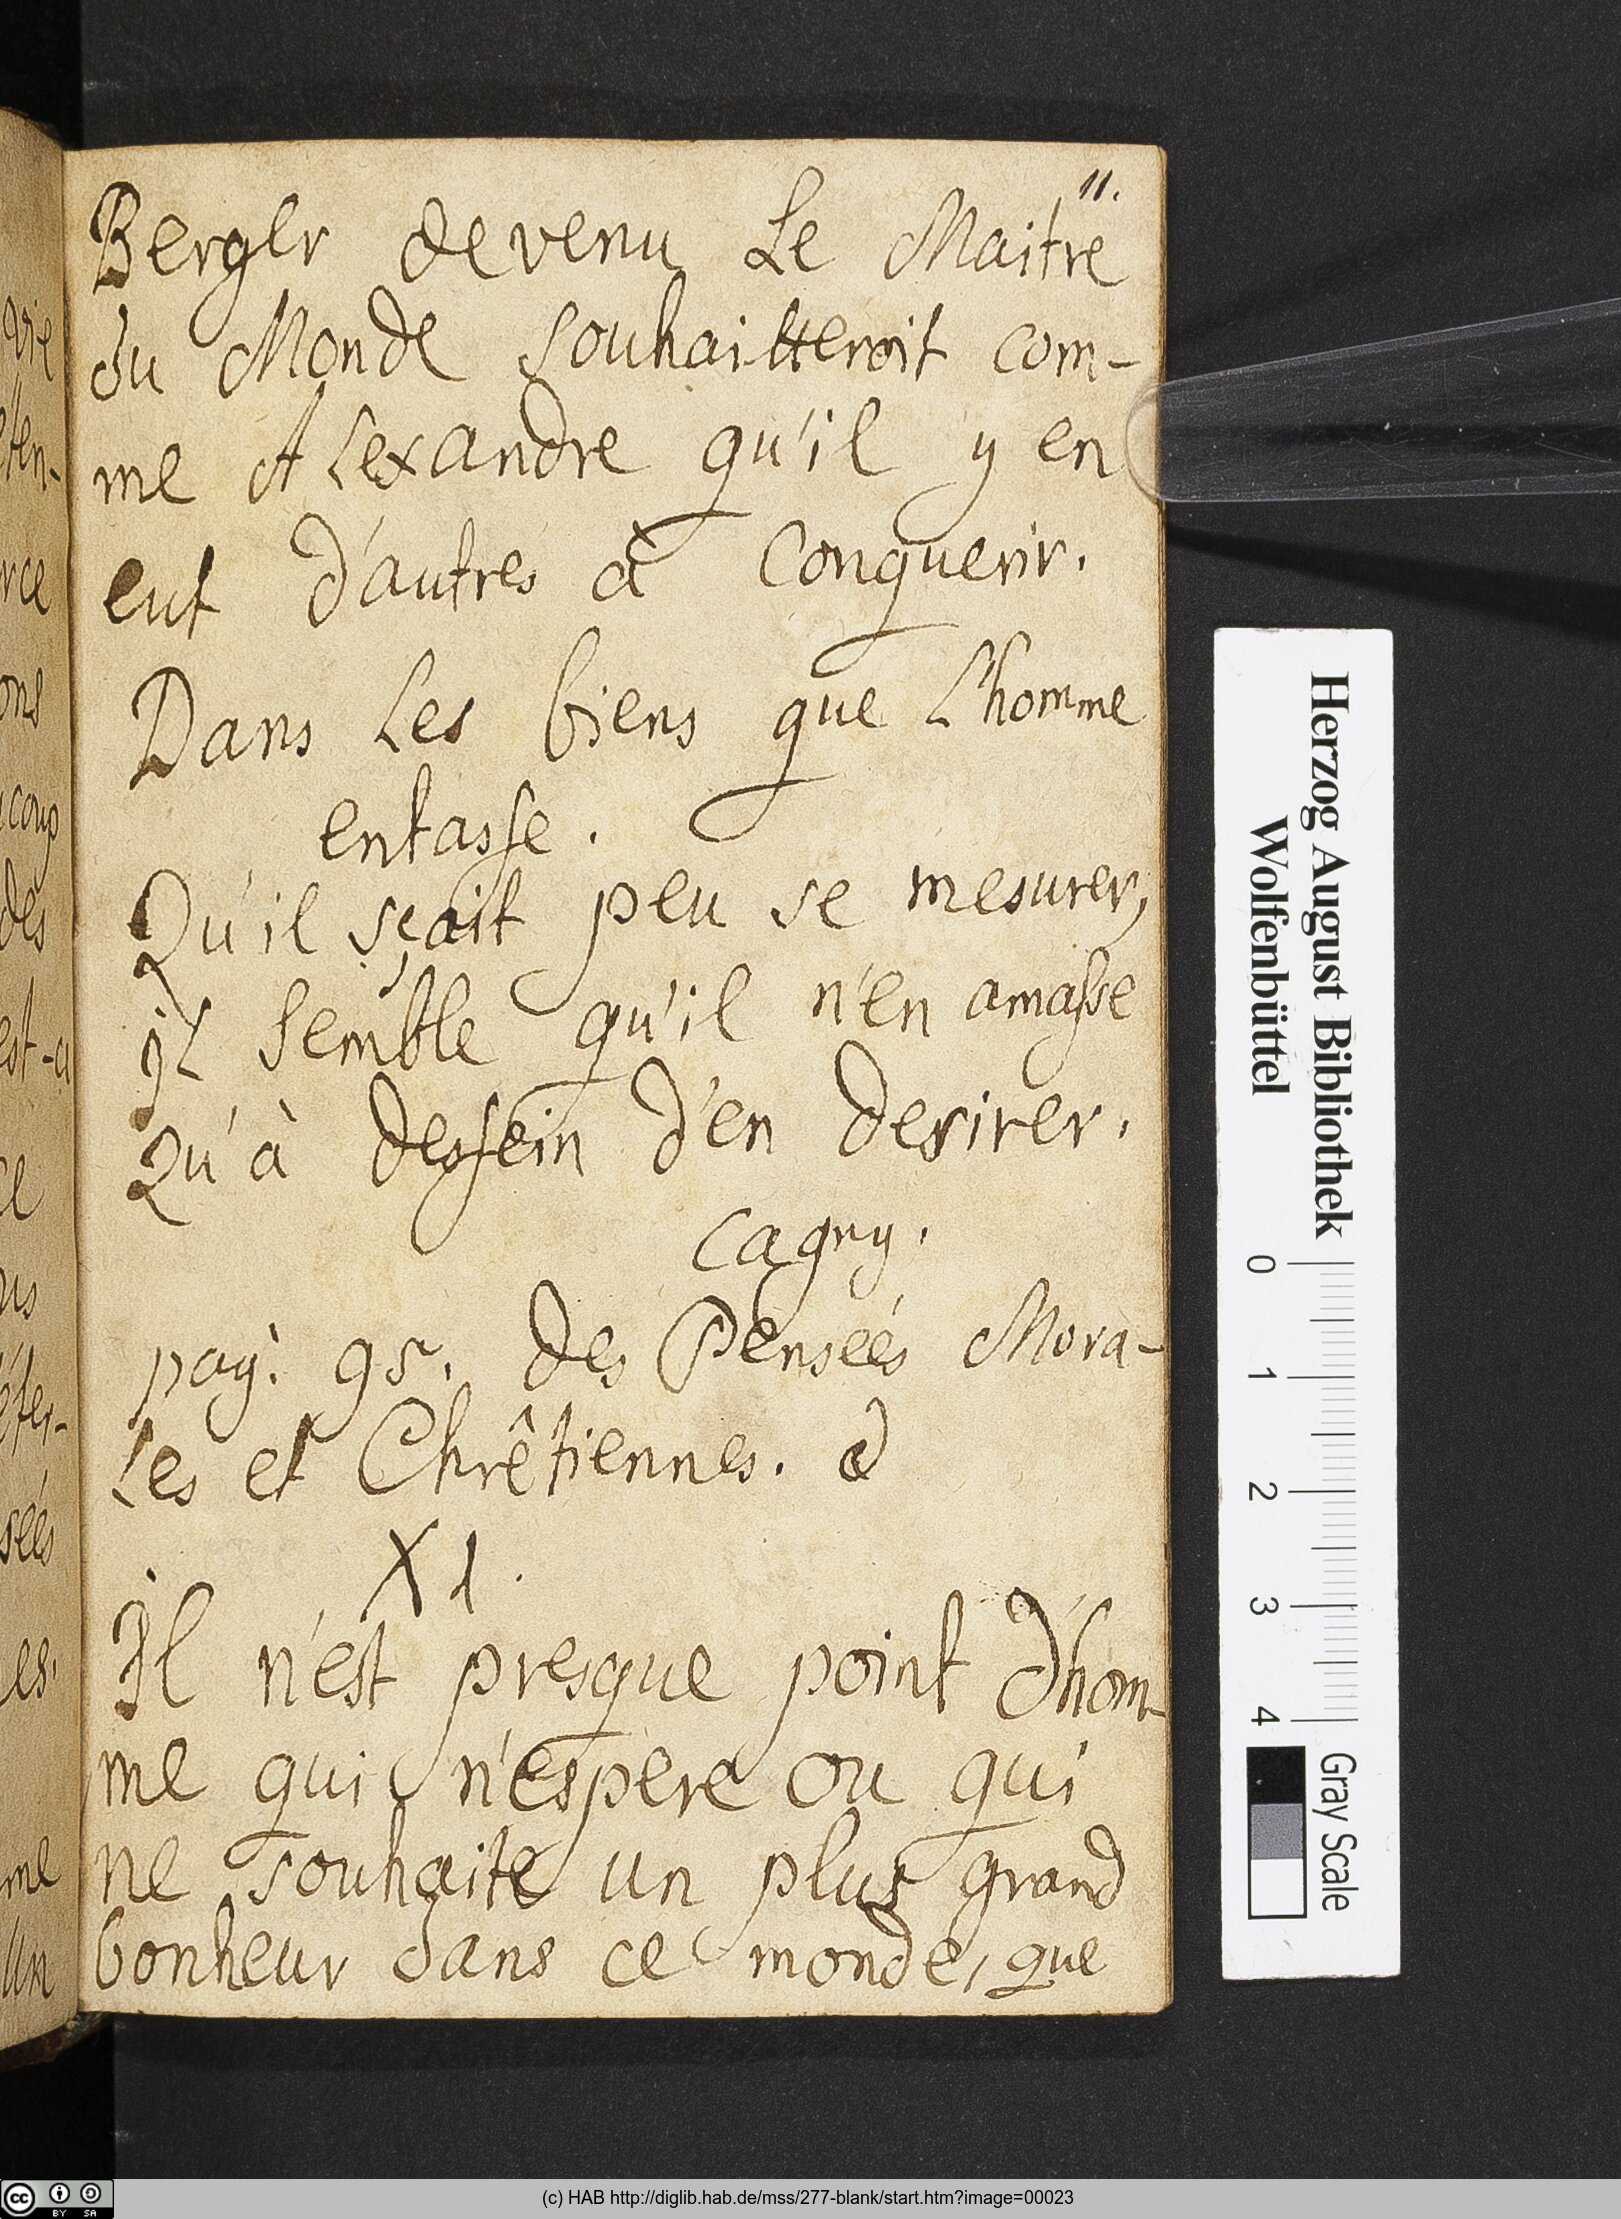 11.
Berger devenu Le Maitre
du Monde souhaitteroit com-
me ALexandre qu'il y en
eut d'autres à Conquerir.
Dans Les biens que L'homme
entasse.
Qu'il sçait peu se mesurer,
il semble qu'il n'en amasse
Qu'à dessein d'en desirer.
Cagny.
pag: 95. des Penseés Mora-
Les et Chrêtiennes.
XI.
Il n'est presque point d'hom-
me qui n'espere ou qui
ne souhaite un plus grand
bonheur dans ce monde, que
vie
éten-
rce
ons
ucoup
des
est-a
ce
us
éfer-
sées
es.
me
un
Herzog August Bibliothek
Wolfenbüttel
0 1 2 3 4
Gray Scale
(c) HAB http://diglib.hab.de/mss/277-blank/start.htm?image=00023
cc BY SA